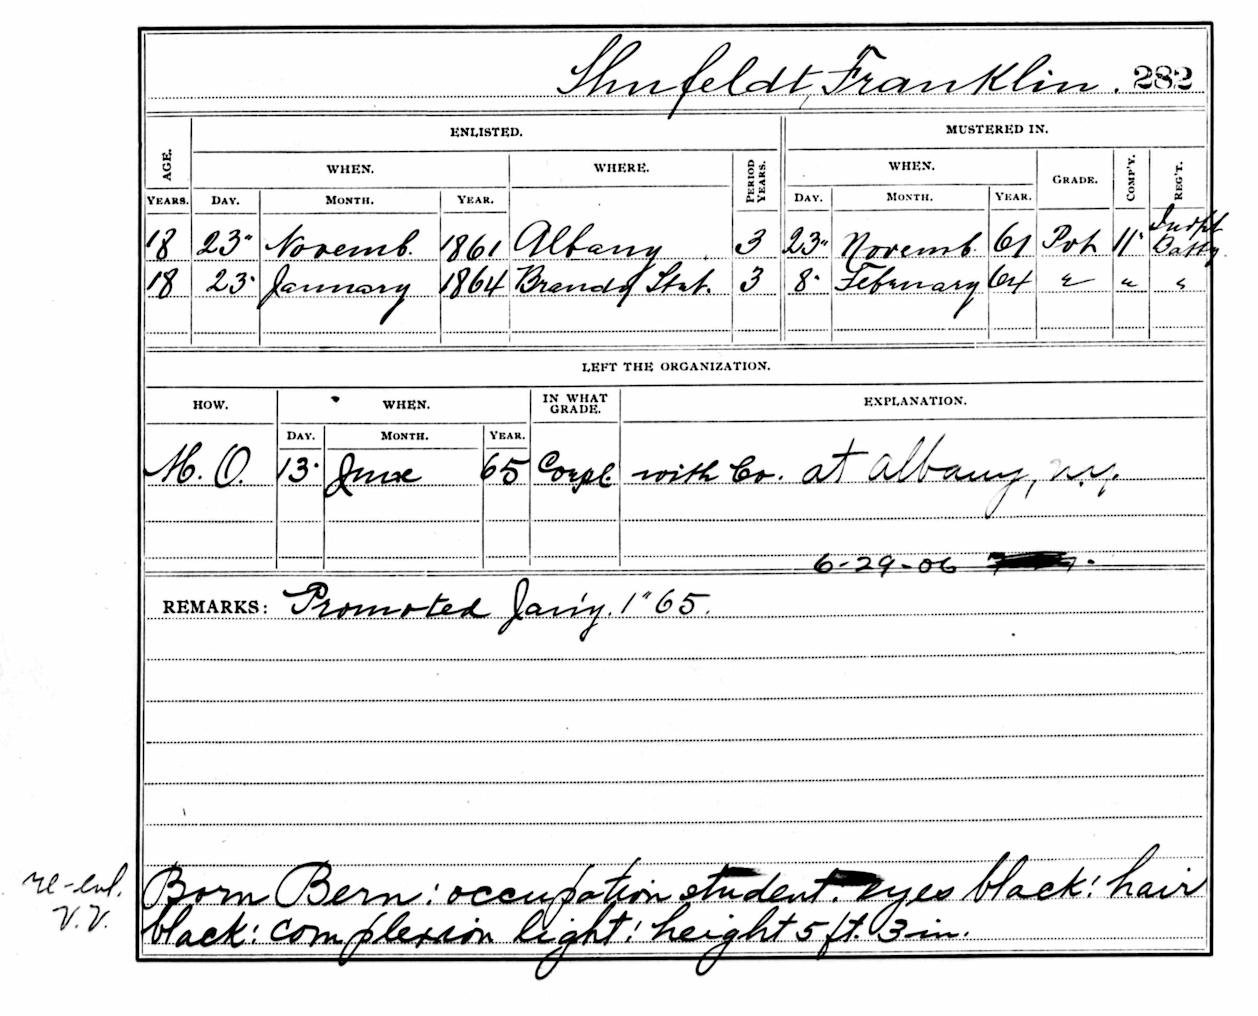 Shufeldt, Franklin. 282
ENLISTED. MUSTERED IN.
AGE. WHEN. WHERE. PERIOD YEARS. WHEN. GRADE. COMP'Y. REG'T.
YEARS. DAY. MONTH. YEAR. DAY. MONTH. YEAR.
18 23" Novemb. 1861 Albany 3 23" Novemb. 61 Pvt 11" Indpt Batty.
18 23" January 1864 Brandy Stat. 3 8" February 64 " " "
LEFT THE ORGANIZATION.
HOW. WHEN. IN WHAT GRADE. EXPLANATION.
DAY. MONTH. YEAR.
M. O. 13" June 65 Corpl. with Co. at Albany, N.Y.
6-29-06
REMARKS: Promoted Jan'y. 1" 65.
re-enl. Born Bern: occupation student. eyes black: hair
V.V. black: complexion light: height 5 ft. 3 in.